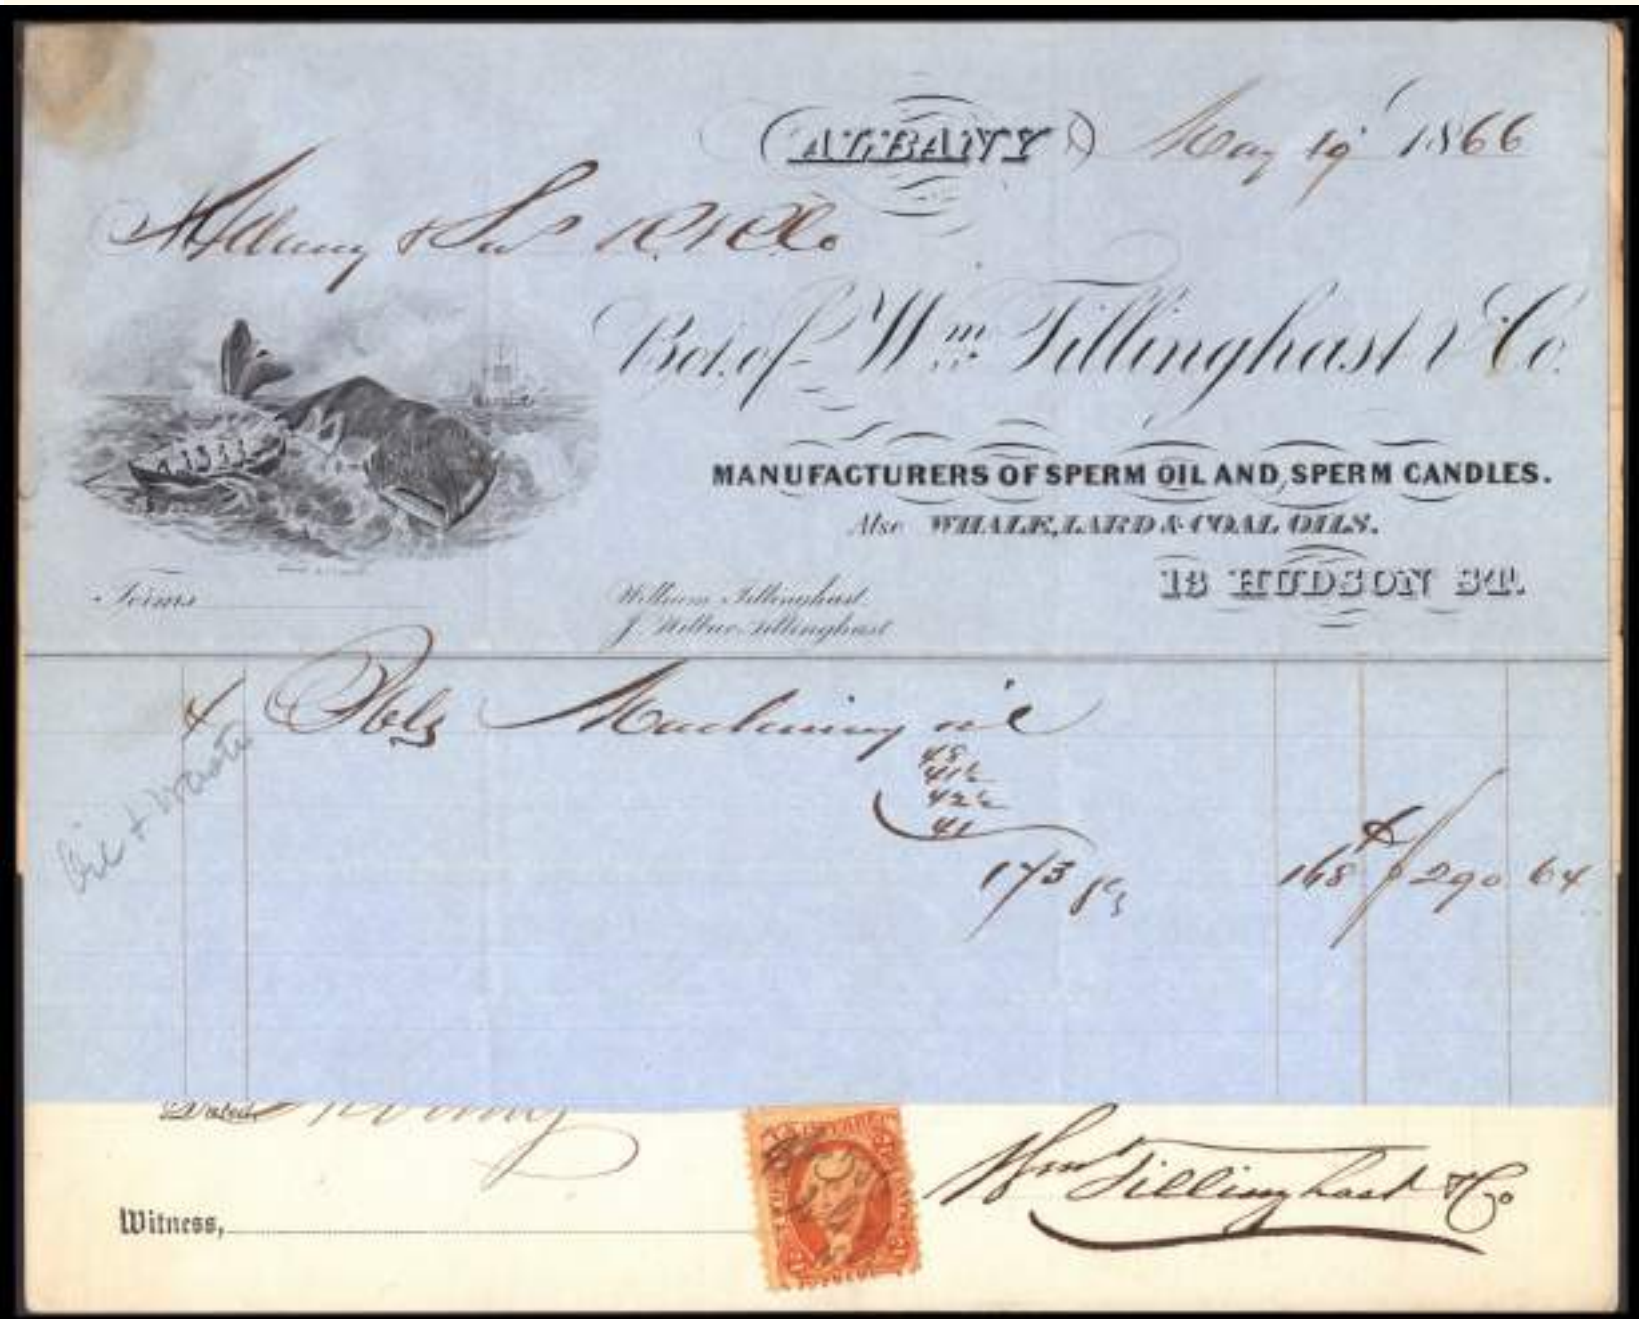 ALBANY May 19 1866
Albany & Sus R.R.Co
Bot. of Wm. Tillinghast & Co.
MANUFACTURERS OF SPERM OIL AND SPERM CANDLES.
Also WHALE, LARD & COAL OILS.
13 HUDSON ST.
Terms
William Tillinghast.
J. Wilbur Tillinghast
4 Bbls Machinery oil
48
41½
42½
41
173 gs 168 $ 290 64
Oil & Waste
Dated,
Witness,
Wm Tillinghast & Co